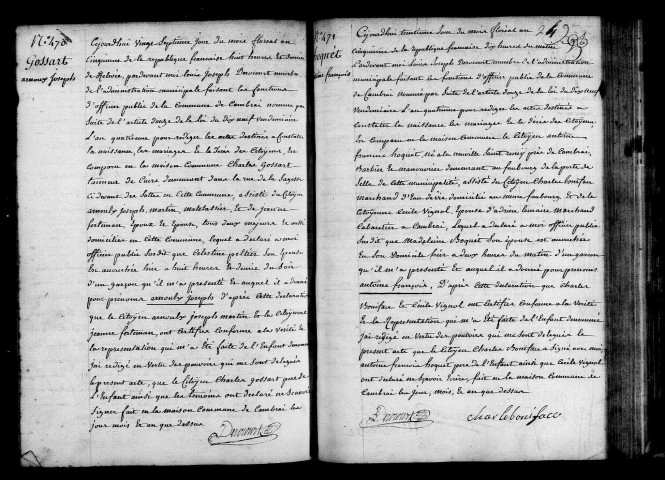 N.° 470
Gossart
arnouly Joseph
Cejourdhui Vingt Septieme Jour du mois floreal an
Cinquieme de la republique francaise huit heures et demie
de Relevée, pardevant moi Louis Joseph Dencourt membre
de l'administration municipale faisant les fonctions
d'officier public de la Commune de Cambrai nommé par
Suite de l'article douze de la loi du dix neuf vendemiaire
L'an quatrieme pour rediger les actes destinés a Constater
la naissance, les mariages Et le Décès des Citoyens, En
Comparu en la maison Commune Charles Gossart
tanneur de Cuire demeurant dans la rue de la Sagesse
Ci devant des Sottes en Cette Commune, assisté du Citoyen
arnouly Joseph martin matelassier Et de jeanne
forteman, Epoux et Epouse, tous deux majeurs Et
domiciliés en Cette Commune, Lequel a declaré a moi
officier public Susdit que Celestine peltier Son Epouse
En accouchée hier a huit heures Et demie du Soir
d'un garçon qu'il m'a presenté Et auquel il a donné
pour prenoms arnouly Joseph D'apres Cette declaration
que le Citoyen arnouly joseph martin Et la Citoyenne
jeanne forteman, ont Certifier Conforme a la verité Et
la representation qui m'a Eté faite de l'Enfant denommé
J'ai redigé en Vertu des pouvoirs qui me Sont delegués
le present acte, que le Citoyen Charles gossart pere de
l'Enfant ainsi que les temoins ont declaré ne Scavoir
Signer fait en la maison Commune de Cambrai les
jour mois et an que dessus
N.° 471
hoquet
antoine françois
Cejourdhui trentieme Jour du mois floreal an
Cinquieme de la republique française dix heures du matin
Pardevant moi Louis Joseph Dencourt membre de l'administration
municipale faisant les fonctions d'officier public de la Commune
de Cambrai nommé par Suite de l'article douze de la loi du Dix Neuf
Vendemiaire L'an quatrieme pour rediger les actes destinés a
Constater la naissance les mariages Et le Décès des Citoyens,
En Comparu en la maison Commune le Citoyen antoine
francois hoquet, né a la neuville Saint remy près de Cambrai,
Barbier Et manouvrier demeurant au faubourg de la porte de
Selle de Cette municipalité, assisté du Citoyen Charles boniface
marchand d'Eau de vie domicilié au meme faubourg Et de la
Citoyenne Cecile Vignol, Epouse d'adrien Lenaire marchand
Cabaretier a Cambrai, Lequel a declaré a moi officier public
Susdit que Madelaine Boquet Son Epouse est accouchée
En Son Domicile hier a deux heures du matin d'un garçon
qu'il m'a presenté Et auquel il a donné pour prenoms
antoine françois, D'après Cette declaration que Charles
Boniface Et Cecile Vignol ont Certifier Conforme a la Verité
Et la Representation qui m'a Eté faite de l'Enfant denommé
J'ai redigé en Vertu des pouvoirs qui me Sont delegués le
present acte que le Citoyen Charles Boniface a Signé avec moi,
antoine françois hoquet pere de l'Enfant ainsi que Cecile Vignol
ont declaré ne Scavoir Ecrire, fait en la maison Commune de
Cambrai les Jour, mois, Et an que dessus
Charle boniface